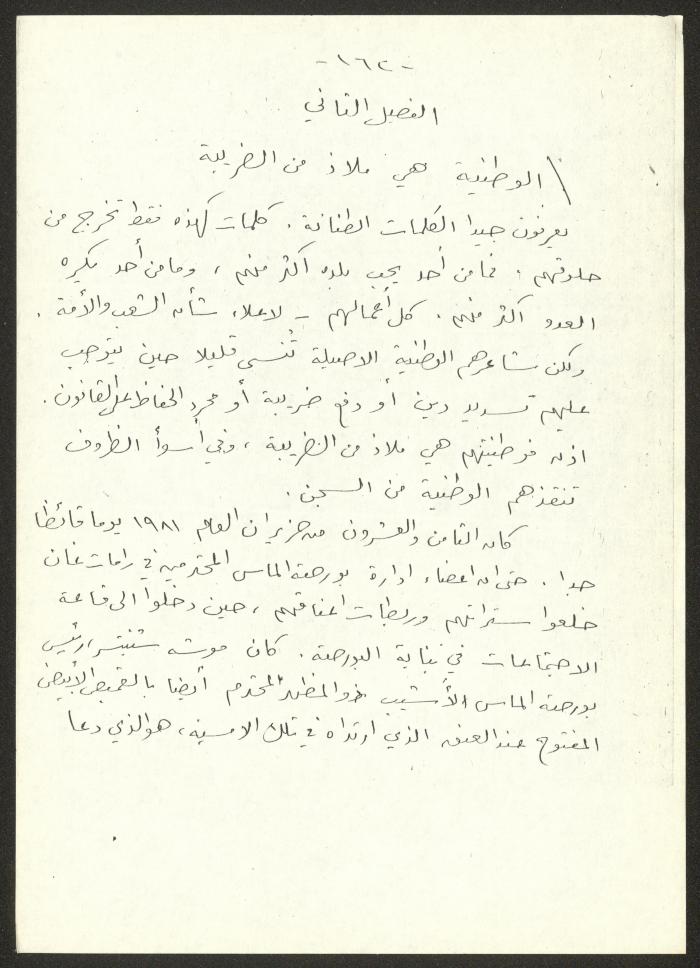 -١٦٢-
الفصل الثاني
الوطنية هي ملاذ من الضريبة
يعرفون جيدا الكلمات الطنانة. كلمات كهذه فقط تخرج من
حلوقهم. فما من أحد يحب بلده اكثر منهم، وما من أحد يكره
العدو اكثر منهم. كل أعمالهم - لاعلاء شأن الشعب والأمة.
ولكن مشاعرهم الوطنية الاصيلة تُنسى قليلا حين يتوجب
عليهم تسديد دين أو دفع ضريبة أو مجرد الحفاظ على القانون.
اذن فوطنيتهم هي ملاذ من الضريبة، وفي أسوأ الظروف
تنقذهم الوطنية من السجن.
كان الثامن والعشرون من حزيران العام ١٩٨١ يوما قائظا
جدا. حتى ان اعضاء ادارة بورصة الماس المحترمين في رامات غان
خلعوا ستراتهم وربطات اعناقهم، حين دخلوا الى قاعة
الاجتماعات في بناية البورصة. كان موشه شنيتسر، رئيس
بورصة الماس الأشيب ذو المظهر المحترم أيضا بالقميص الأبيض
المفتوح عند العنق الذي ارتداه في تلك الامسية، هو الذي دعا